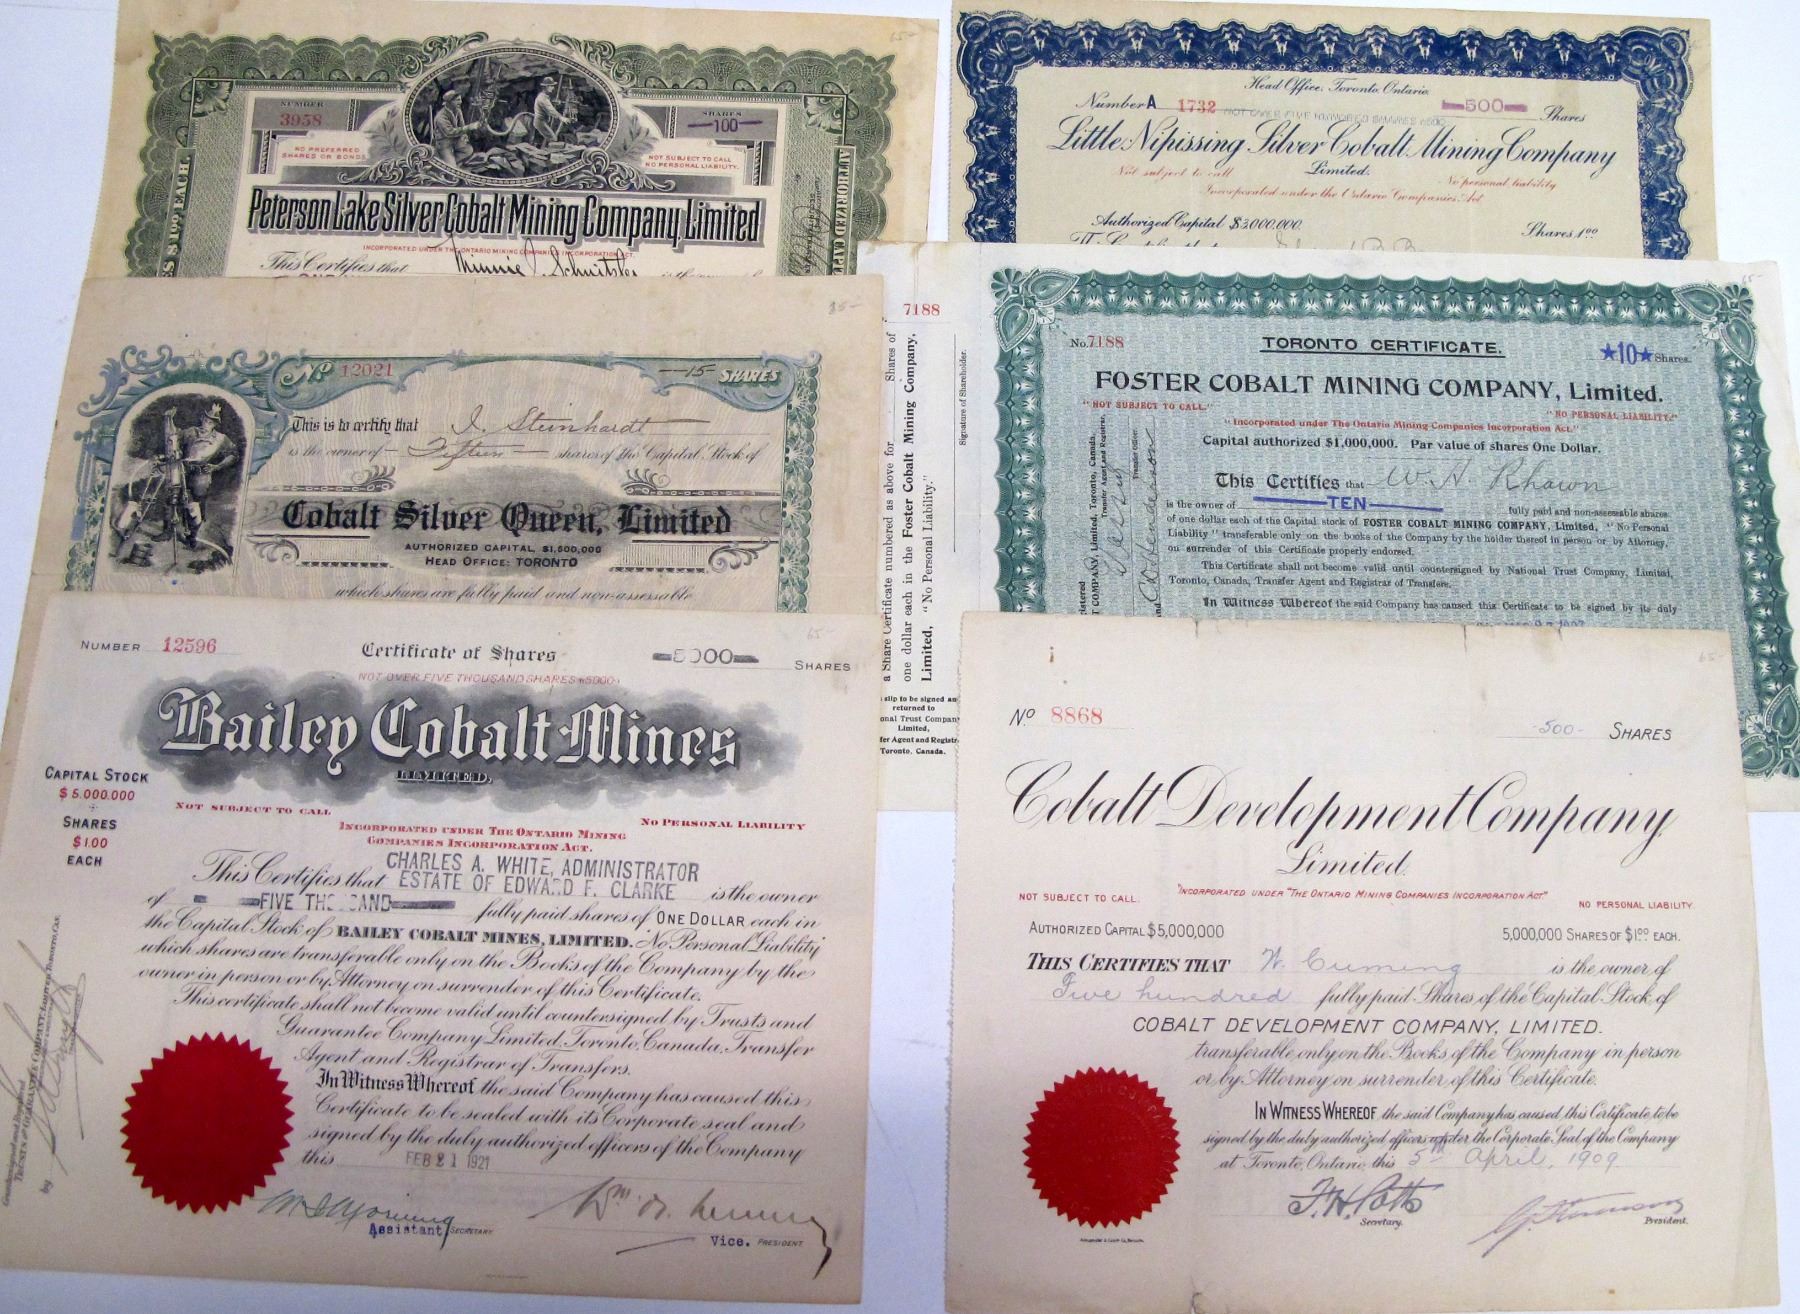 NUMBER
3958
SHARES
—100—
NO PREFERRED
SHARES OR BONDS
NOT SUBJECT TO CALL
NO PERSONAL LIABILITY.
Peterson Lake Silver Cobalt Mining Company, Limited
INCORPORATED UNDER THE ONTARIO MINING COMPANIES INCORPORATION ACT.
This Certifies that Minnie J. Schnitzler is the
$1.00 EACH
AUTHORIZED
65-
Head Office: Toronto, Ontario.
Number A 1732
NOT OVER FIVE HUNDRED SHARES
500
Shares
Little Nipissing Silver Cobalt Mining Company
Limited.
Not subject to call
No personal liability
Incorporated under the Ontario Companies Act
Authorized Capital $3,000,000.
Shares 1.00
85-
No 12021
—15— SHARES
This is to certify that I. Steinhardt
is the owner of — Fifteen — shares of the Capital Stock of
Cobalt Silver Queen, Limited
AUTHORIZED CAPITAL, $1,500,000
HEAD OFFICE: TORONTO
which shares are fully paid and non-assessable
7188
a Share Certificate numbered as above for Shares of
one dollar each in the Foster Cobalt Mining Company,
Limited, "No Personal Liability."
Signature of Shareholder.
slip to be signed
returned to
Trust Company
Limited,
Agent and
Toronto, Canada.
65-
No. 7188
TORONTO CERTIFICATE.
★10★ Shares.
FOSTER COBALT MINING COMPANY, Limited.
"NOT SUBJECT TO CALL."
"NO PERSONAL LIABILITY."
"Incorporated under The Ontario Mining Companies Incorporation Act."
Capital authorized $1,000,000. Par value of shares One Dollar.
This Certifies that W. A. Rhawn
is the owner of TEN fully paid and non-assessable shares
of one dollar each of the Capital stock of FOSTER COBALT MINING COMPANY, Limited, "No Personal
Liability" transferable only on the books of the Company by the holder thereof in person or by Attorney,
on surrender of this Certificate properly endorsed.
This Certificate shall not become valid until countersigned by National Trust Company, Limited,
Toronto, Canada, Transfer Agent and Registrar of Transfers.
In Witness Whereof the said Company has caused this Certificate to be signed by its duly
COMPANY, Limited, Toronto, Canada,
Transfer Agent and Registrar.
Transfer Officer.
65-
NUMBER 12596
Certificate of Shares
5000
SHARES
NOT OVER FIVE THOUSAND SHARES
Bailey Cobalt Mines
LIMITED.
CAPITAL STOCK
$5,000,000
SHARES
$1.00
EACH
NOT SUBJECT TO CALL
NO PERSONAL LIABILITY
INCORPORATED UNDER THE ONTARIO MINING
COMPANIES INCORPORATION ACT.
This Certifies that CHARLES A. WHITE, ADMINISTRATOR
ESTATE OF EDWARD F. CLARKE is the owner
of fully paid shares of ONE DOLLAR each in
the Capital Stock of BAILEY COBALT MINES, LIMITED. "No Personal Liability"
which shares are transferable only on the Books of the Company by the
owner in person or by Attorney on surrender of this Certificate.
This certificate shall not become valid until countersigned by Trusts and
Guarantee Company Limited, Toronto, Canada, Transfer
Agent and Registrar of Transfers.
In Witness Whereof the said Company has caused this
Certificate to be sealed with its Corporate seal and
signed by the duly authorized officers of the Company
this FEB 21 1921
Assistant SECRETARY
Vice. PRESIDENT
65-
No 8868
-500- SHARES
Cobalt Development Company
Limited.
NOT SUBJECT TO CALL.
"INCORPORATED UNDER "THE ONTARIO MINING COMPANIES INCORPORATION ACT."
NO PERSONAL LIABILITY.
AUTHORIZED CAPITAL $5,000,000
5,000,000 SHARES OF $1.00 EACH.
THIS CERTIFIES THAT W. Cuming is the owner of
Five hundred fully paid Shares of the Capital Stock of
COBALT DEVELOPMENT COMPANY, LIMITED.
transferable only on the Books of the Company in person
or by Attorney on surrender of this Certificate.
IN WITNESS WHEREOF the said Company has caused this Certificate to be
signed by the duly authorized officers under the Corporate Seal of the Company
at Toronto, Ontario, this 5th April, 1909
F. H. Potts
Secretary.
President.